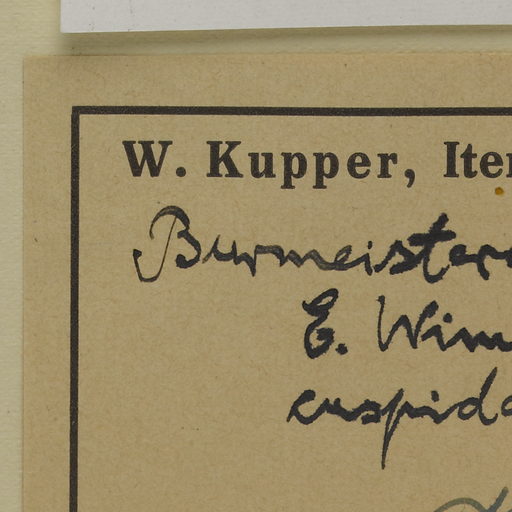 W. Kupper, Iter
Burmeistera
E. Wim
cuspida